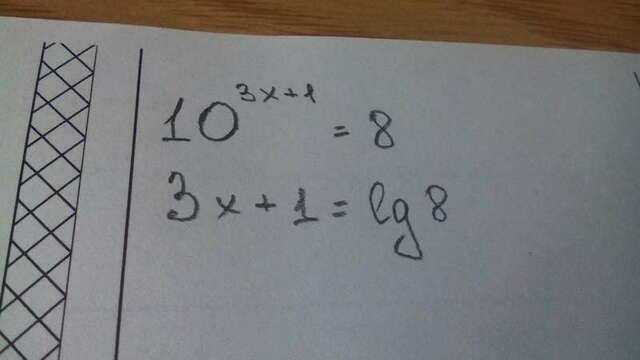 10^{3x+1} = 8
3x + 1 = lg 8